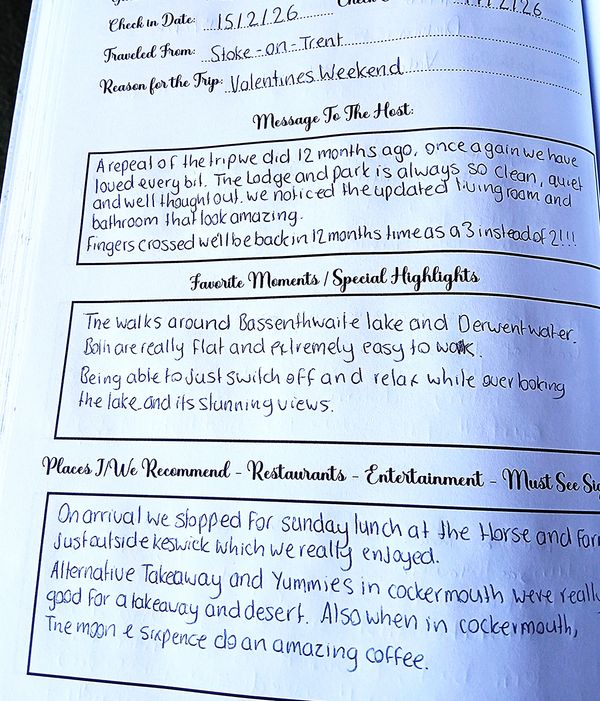 Check In Date: 15/2/26
Traveled From: Stoke-on-Trent
Reason for the Trip: Valentines Weekend
Message To The Host:
A repeal of the trip we did 12 months ago, once again we have
loved every bit. The Lodge and park is always so clean, quiet
and well thought out. we noticed the updated living room and
bathroom that look amazing.
Fingers crossed we'll be back in 12 months time as a 3 instead of 2!!!
Favorite Moments / Special Highlights
The walks around Bassenthwaite lake and Derwentwater.
Both are really flat and extremely easy to walk.
Being able to Just switch off and relax while overlooking
the lake and its stunning views.
Places I/We Recommend - Restaurants - Entertainment - Must See
On arrival we stopped for sunday lunch at the Horse and
Just outside keswick which we really enjoyed.
Alternative Takeaway and Yummies in cockermouth were really
good for a takeaway and desert. Also when in cockermouth,
The moon & sixpence do an amazing coffee.